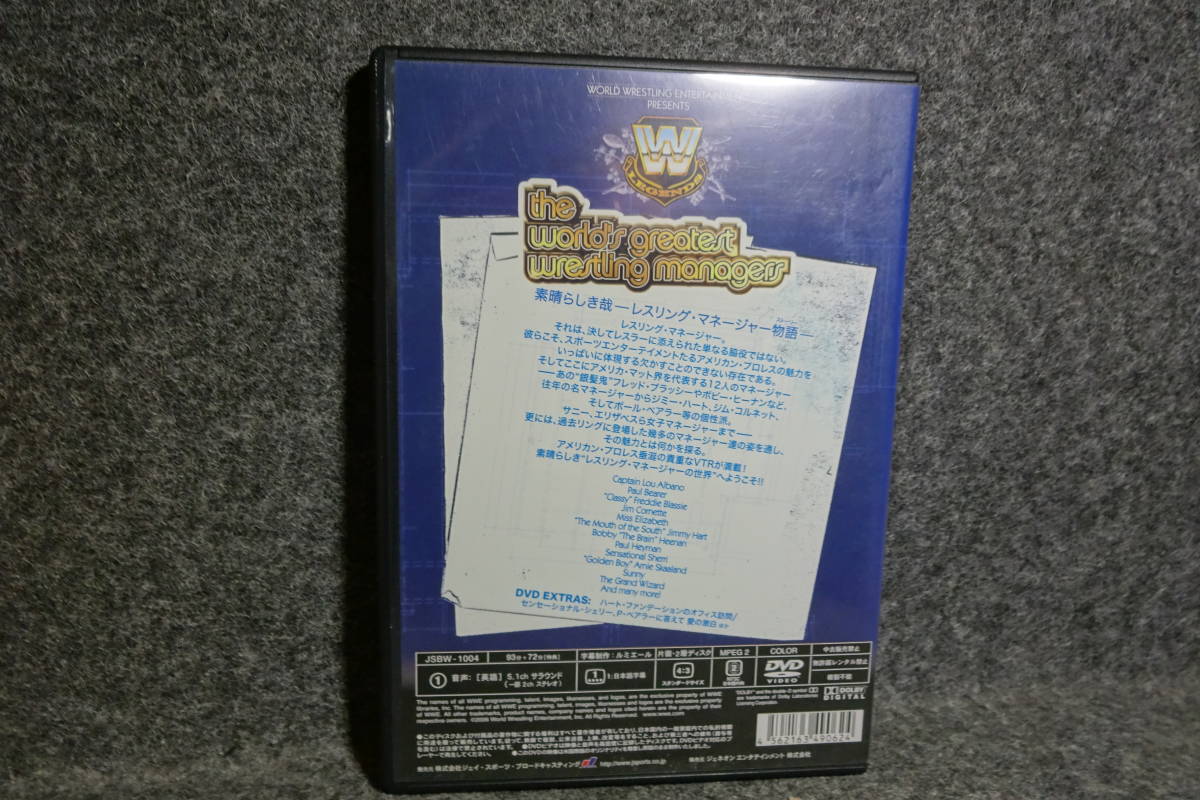 WORLD WRESTLING ENTERTAINMENT
PRESENTS
W
LEGENDS
the
world's greatest
wrestling managers
素晴らしき哉―レスリング・マネージャー物語―
レスリング・マネージャー。
それは、決してレスラーに添えられた単なる脇役ではない。
彼らこそ、スポーツエンターテイメントたるアメリカン・プロレスの魅力を
いっぱいに体現する欠かすことのできない存在である。
そしてここにアメリカ・マット界を代表する12人のマネージャー
――あの“銀髪鬼”フレッド・ブラッシーやボビー・ヒーナンなど、
往年の名マネージャーからジミー・ハート、ジム・コルネット、
そしてポール・ベアラー等の個性派。
サニー、エリザベスら女子マネージャーまで――
更には、過去リングに登場した幾多のマネージャー達の姿を通し、
その魅力とは何かを探る。
アメリカン・プロレス垂涎の貴重なVTRが満載！
素晴らしき“レスリング・マネージャーの世界”へようこそ!!
Captain Lou Albano
Paul Bearer
"Classy" Freddie Blassie
Jim Cornette
Miss Elizabeth
"The Mouth of the South" Jimmy Hart
Bobby "The Brain" Heenan
Paul Heyman
Sensational Sherri
"Golden Boy" Arnie Skaaland
Sunny
The Grand Wizard
And many more!
DVD EXTRAS: ハート・ファンデーションのオフィス訪問/
センセーショナル・シェリー、P・ベアラーに答えて 愛の告白 ほか
JSBW-1004 93分+72分[特典] 字幕制作：ルミエール 片面・2層ディスク MPEG 2 COLOR 中古販売禁止
1 音声：[英語] 5.1ch サラウンド
(一部 2ch ステレオ)
1 1:日本語字幕
4:3
スタンダードサイズ
2
NTSC
日本国内向
DVD
VIDEO
無許諾レンタル禁止
複製不能
The names of all WWE programming, talent names, images, likenesses and logos, are the exclusive property of WWE
libraries, Inc. The names of all WWE programming, talent, images, likenesses and logos are the exclusive property
of WWE. All other trademarks, product names, company names and logos cited herein are the property of their
respective owners. ©2006 World Wrestling Entertainment, Inc. All Rights Reserved. www.wwe.com
"DOLBY" and the double-D symbol
are trademarks of Dolby Laboratories
Licensing Corporation.
DOLBY
DIGITAL
4 562163 490624
発売元 株式会社ジェイ・スポーツ・ブロードキャスティング http://www.jsports.co.jp 販売元 ジェネオン エンタテインメント 株式会社